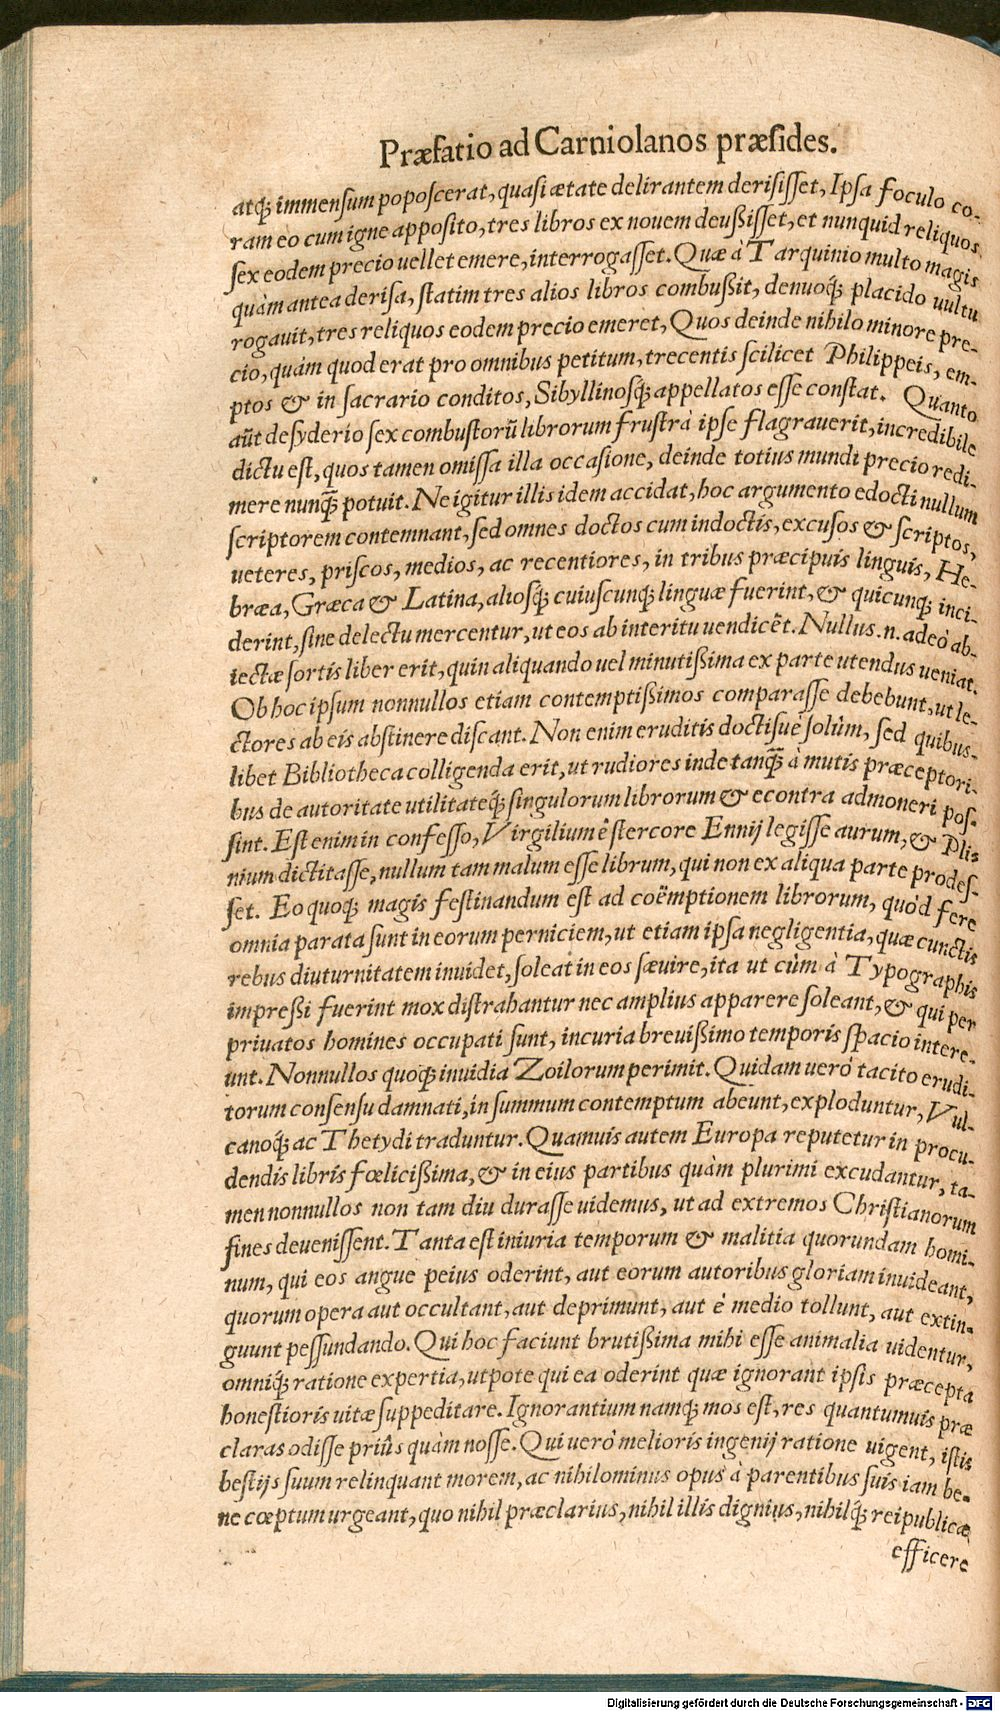 Præfatio ad Carniolanos præsides.
atq́; immensum poposcerat, quasi ætate delirantem derisisset, Ipsa foculo co-
ram eo cum igne apposito, tres libros ex nouem deußisset, et nunquid reliquos
sex eodem precio uellet emere, interrogasset. Quæ à Tarquinio multo magis
quàm antea derisa, statim tres alios libros combußit, denuoq́; placido uultu
rogauit, tres reliquos eodem precio emeret, Quos deinde nihilo minore pre-
cio, quàm quod erat pro omnibus petitum, trecentis scilicet Philippeis, em-
ptos & in sacrario conditos, Sibyllinosq́; appellatos esse constat. Quanto
aūt desyderio sex combustorū librorum frustrà ipse flagrauerit, incredibile
dictu est, quos tamen omissa illa occasione, deinde totius mundi precio redi-
mere nunq̃; potuit. Ne igitur illis idem accidat, hoc argumento edocti nullum
scriptorem contemnant, sed omnes doctos cum indoctis, excusos & scriptos,
ueteres, priscos, medios, ac recentiores, in tribus præcipuis linguis, He-
bræa, Græca & Latina, aliosq́; cuiuscunq; linguæ fuerint, & quicunq; inci-
derint, sine delectu mercentur, ut eos ab interitu uendicēt. Nullus .n. adeò ab-
iectæ sortis liber erit, quin aliquando uel minutißima ex parte utendus ueniat.
Ob hoc ipsum nonnullos etiam contemptißimos comparasse debebunt, ut le-
ctores ab eis abstinere discant. Non enim eruditis doctisue solùm, sed quibus-
libet Bibliotheca colligenda erit, ut rudiores inde tanq̃; à mutis præceptori-
bus de autoritate utilitateq́; singulorum librorum & econtra admoneri pos-
sint. Est enim in confesso, Virgilium è stercore Ennij legisse aurum, & Pli-
nium dictitasse, nullum tam malum esse librum, qui non ex aliqua parte prodes-
set. Eo quoq; magis festinandum est ad coëmptionem librorum, quòd fere
omnia parata sunt in eorum perniciem, ut etiam ipsa negligentia, quæ cunctis
rebus diuturnitatem inuidet, soleat in eos sæuire, ita ut cùm à Typographis
impreßi fuerint mox distrahantur nec amplius apparere soleant, & qui per
priuatos homines occupati sunt, incuria breuißimo temporis spacio intere-
unt. Nonnullos quoq; inuidia Zoilorum perimit. Quidam uerò tacito erudi-
torum consensu damnati, in summum contemptum abeunt, exploduntur, Vul-
canoq́; ac Thetydi traduntur. Quamuis autem Europa reputetur in procu-
dendis libris fœlicißima, & in eius partibus quàm plurimi excudantur, ta-
men nonnullos non tam diu durasse uidemus, ut ad extremos Christianorum
fines deuenissent. Tanta est iniuria temporum & malitia quorundam homi-
num, qui eos angue peius oderint, aut eorum autoribus gloriam inuideant,
quorum opera aut occultant, aut deprimunt, aut è medio tollunt, aut extin-
guunt pessundando. Qui hoc faciunt brutißima mihi esse animalia uidentur,
omniq́; ratione expertia, utpote qui ea oderint quæ ignorant ipsis præcepta
honestioris uitæ suppeditare. Ignorantium namq; mos est, res quantumuis præ
claras odisse priùs quàm nosse. Qui uerò melioris ingenij ratione uigent, istis
bestijs suum relinquant morem, ac nihilominus opus à parentibus suis iam be-
ne cœptum urgeant, quo nihil præclarius, nihil illis dignius, nihilq́; reipublicæ
efficere
Digitalisierung gefördert durch die Deutsche Forschungsgemeinschaft - DFG